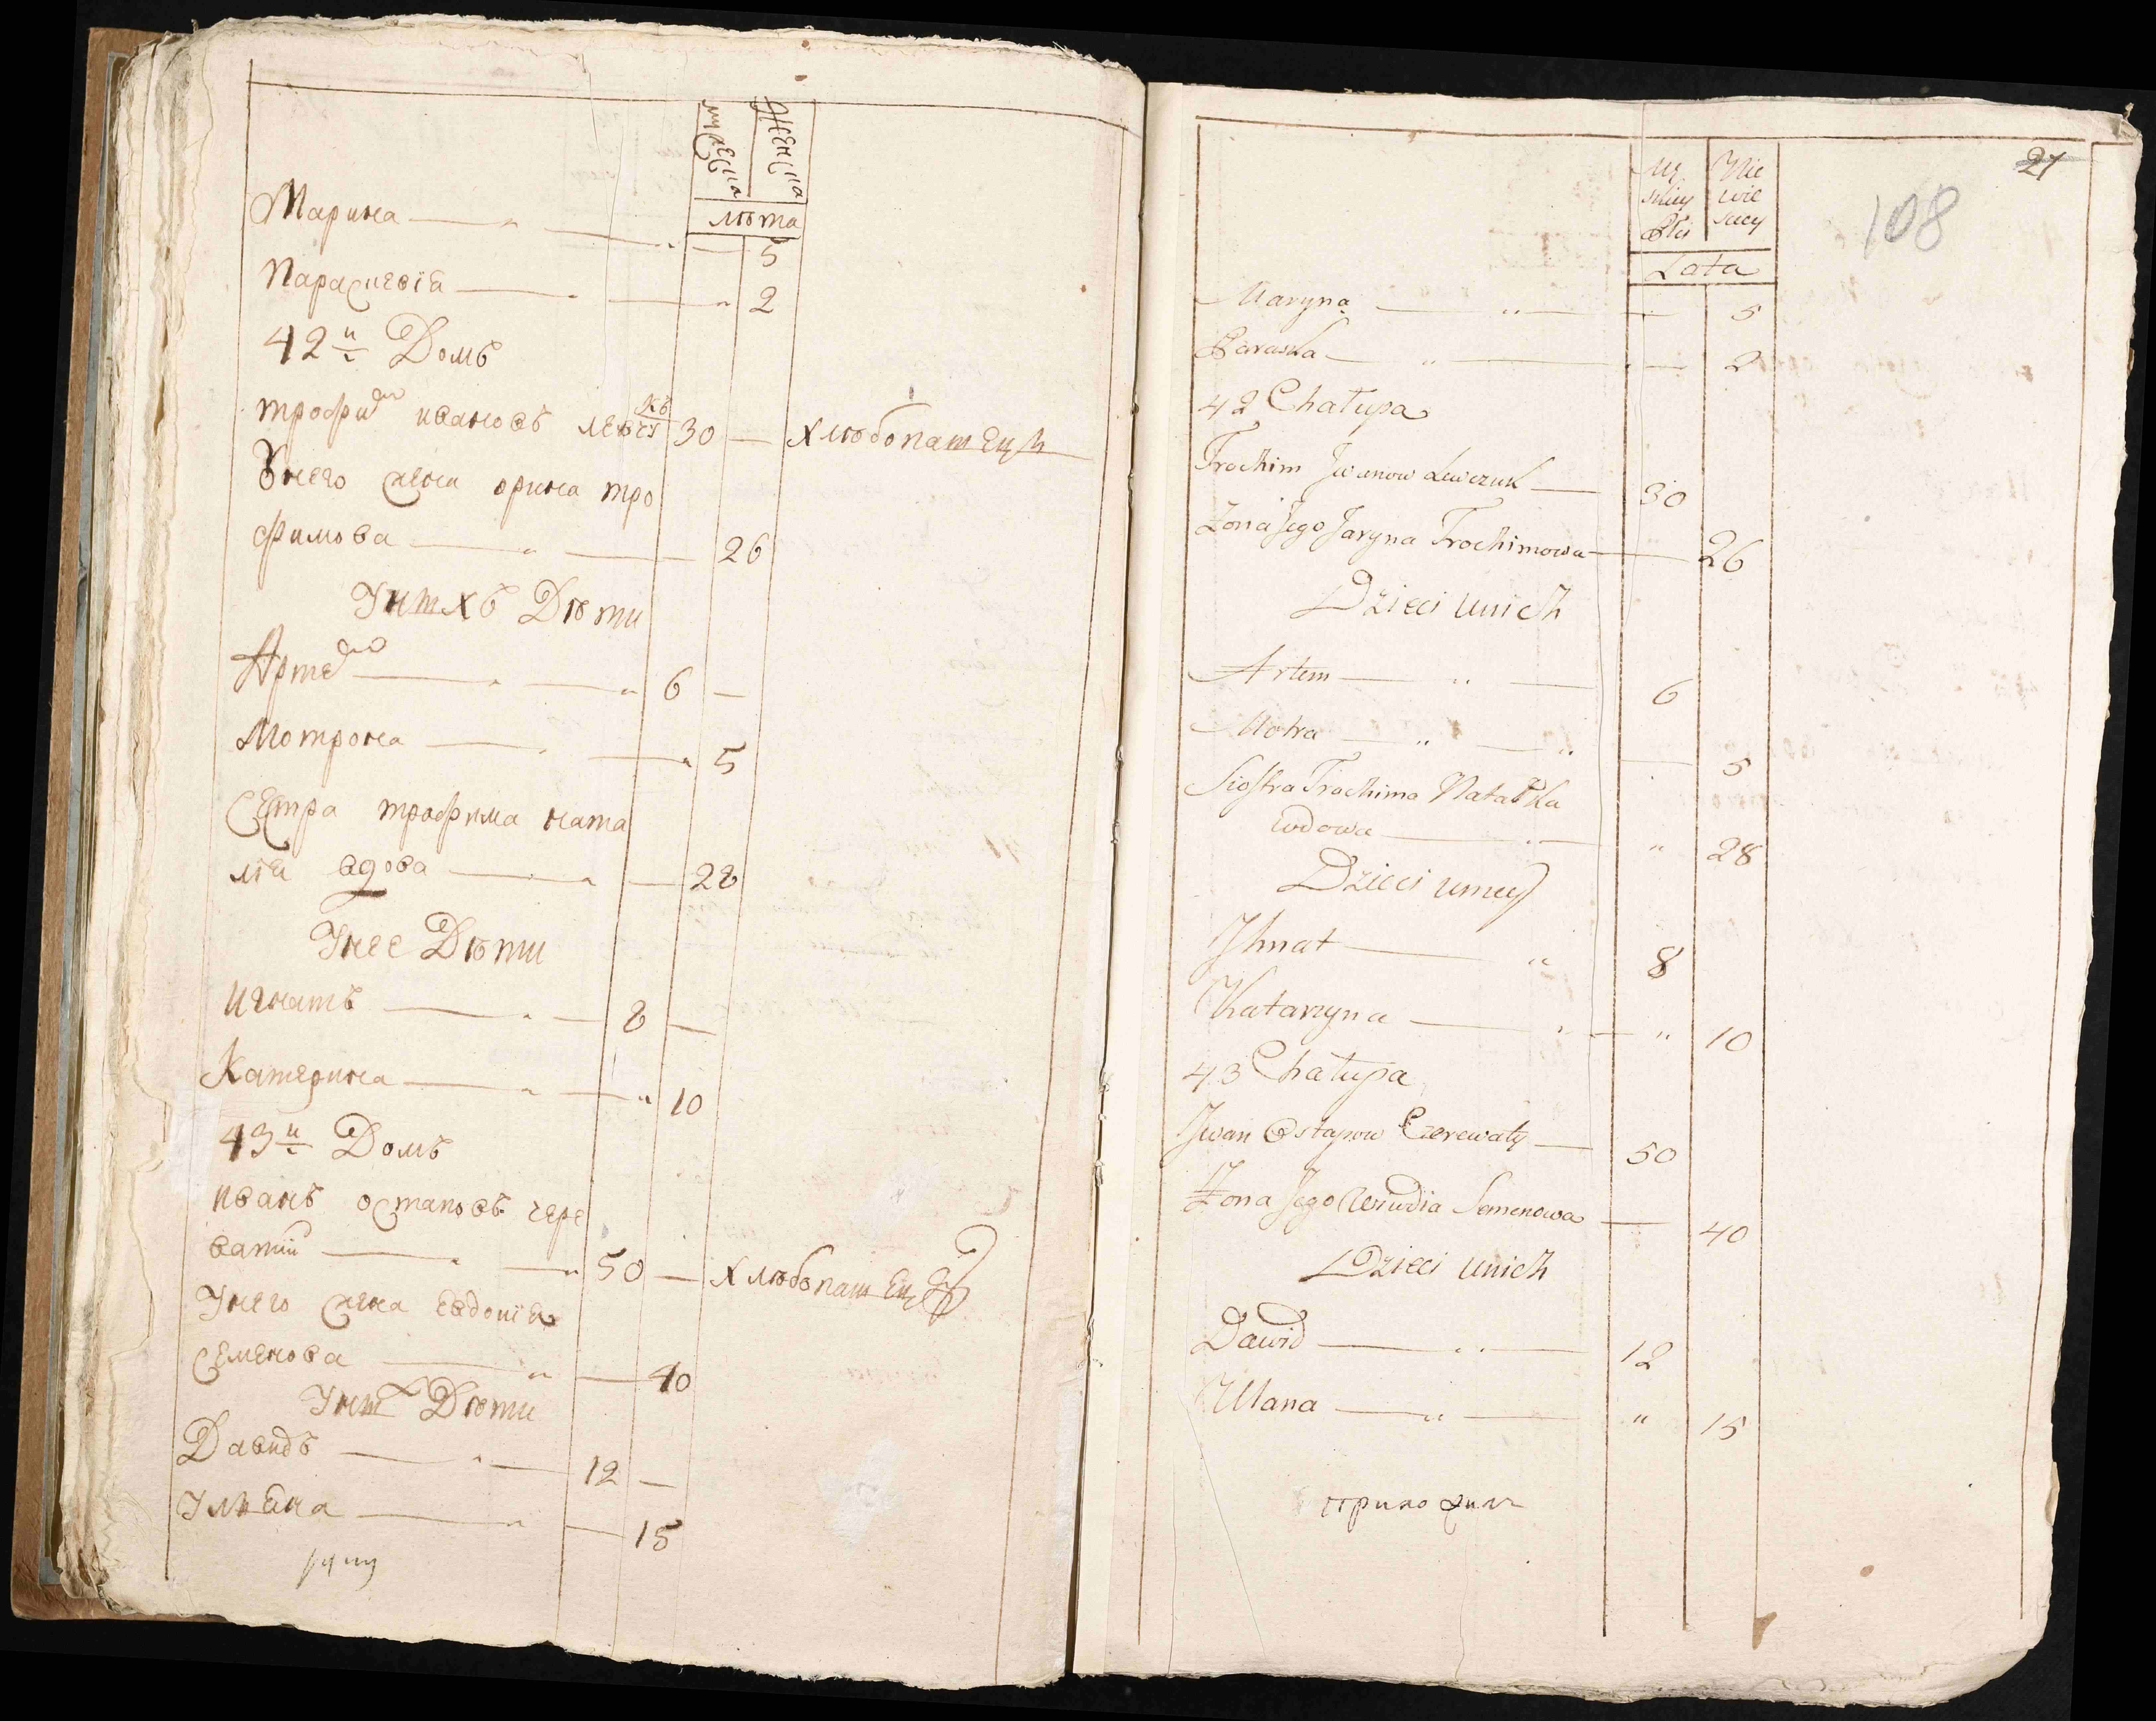 мужеска женска
лѣта
Марина — „ — „ — 5
Параскевїя — „ — „ 2
42й Домъ
трофим ивановъ левчукъ 30 — хлѣбопашецъ
Унего жена орина тро
фимова — „ — 26
Унихъ Дѣти
Артем — „ — „ 6 —
Мотрона — „ — „ 5
Сестра трофима ната
лїя вдова — „ — 28
Унее Дѣти
игнатъ — „ — 8 —
Катерина — „ — „ 10
43й Домъ
иванъ остаповъ чере
ватий — „ — „ 50 — хлѣбопашецъ
Унего жена евдокїя
семенова — „ — 40
Уних Дѣти
Давидъ — „ — 12 —
Ульяна — „ — 15
21
108
Mę
skiey
Płci
Nie
wie
sciey
Lata
Maryna — „ — — 5
Paraska — „ — „ — 2
42 Chałupa
Trochim Jwanow Lewczuk — 30
Zona Jego Jaryna Trochimowa — 26
Dzieci unich
Artem — „ — 6
Motra — „ — „ — 5
Siostra Trochima Natalka
wdowa — „ — „ 28
Dzieci uniey
Jhnat — „ 8
Katarzyna — „ — „ 10
43 Chałupa
Jwan Ostapow Czerewaty — 50
Zona Jego Owdia Semenowa — 40
Dzieci unich
Dawid — „ — 12
Ulana — „ — „ 15